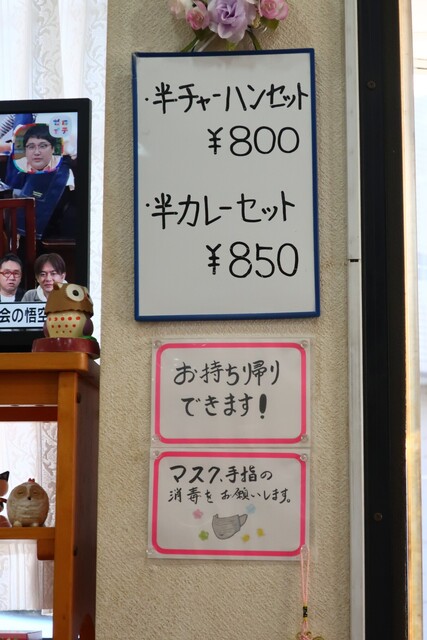 ・半チャーハンセット
¥800
・半カレーセット
¥850
お持ち帰り
できます!
マスク、手指の
消毒をお願いします。
会の悟空